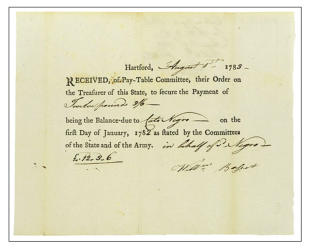 Hartford, August 1st 1783 –
RECEIVED, of Pay-Table Committee, their Order on
the Treasurer of this State, to secure the Payment of
Twelve pounds 3/6 —
being the Balance due to Cato Negro — on the
first Day of January, 1782 as stated by the Committees
of the State and of the Army. in behalf of sd Negro —
£12.3.6
Willm